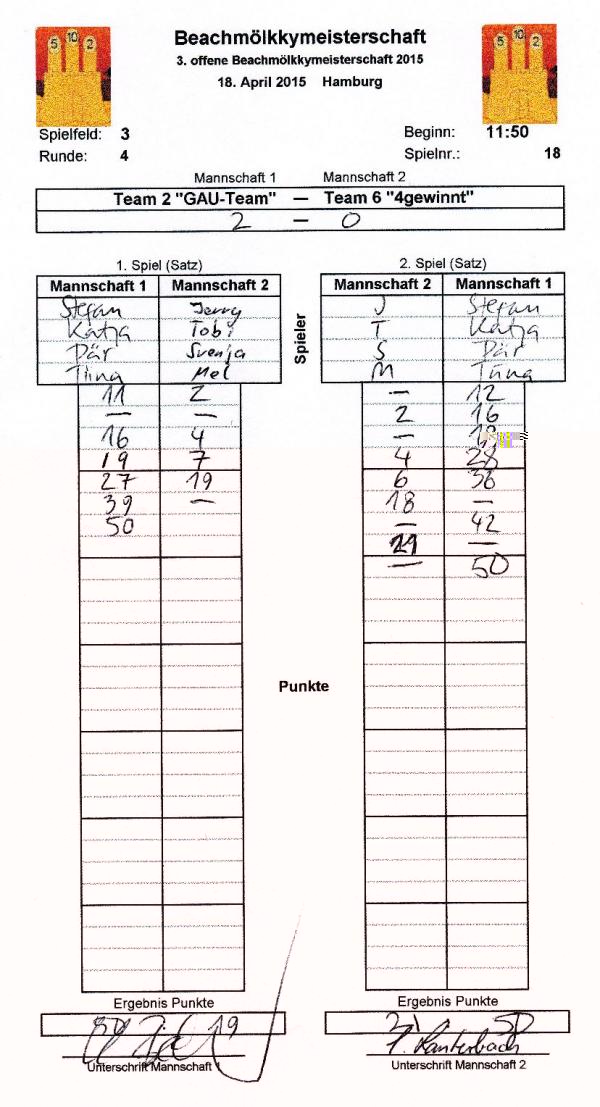 5 10 2 Beachmölkkymeisterschaft 5 10 2
3. offene Beachmölkkymeisterschaft 2015
18. April 2015 Hamburg
Spielfeld: 3 Beginn: 11:50
Runde: 4 Spielnr.: 18
Mannschaft 1 Mannschaft 2
Team 2 "GAU-Team" — Team 6 "4gewinnt"
2 — 0
1. Spiel (Satz) 2. Spiel (Satz)
Mannschaft 1 Mannschaft 2 Mannschaft 2 Mannschaft 1
Stefan Jerry J Stefan
Katja Tobi T Katja
Pär Svenja S Pär
Tiina Mel M Tiina
Spieler
11 2 — 12
— — 2 16
16 4 —
19 7 4 28
27 19 6 36
39 — 18 —
50 — 42
21 —
— 50
Punkte
Ergebnis Punkte Ergebnis Punkte
50 19 21 50
Unterschrift Mannschaft 1 Unterschrift Mannschaft 2